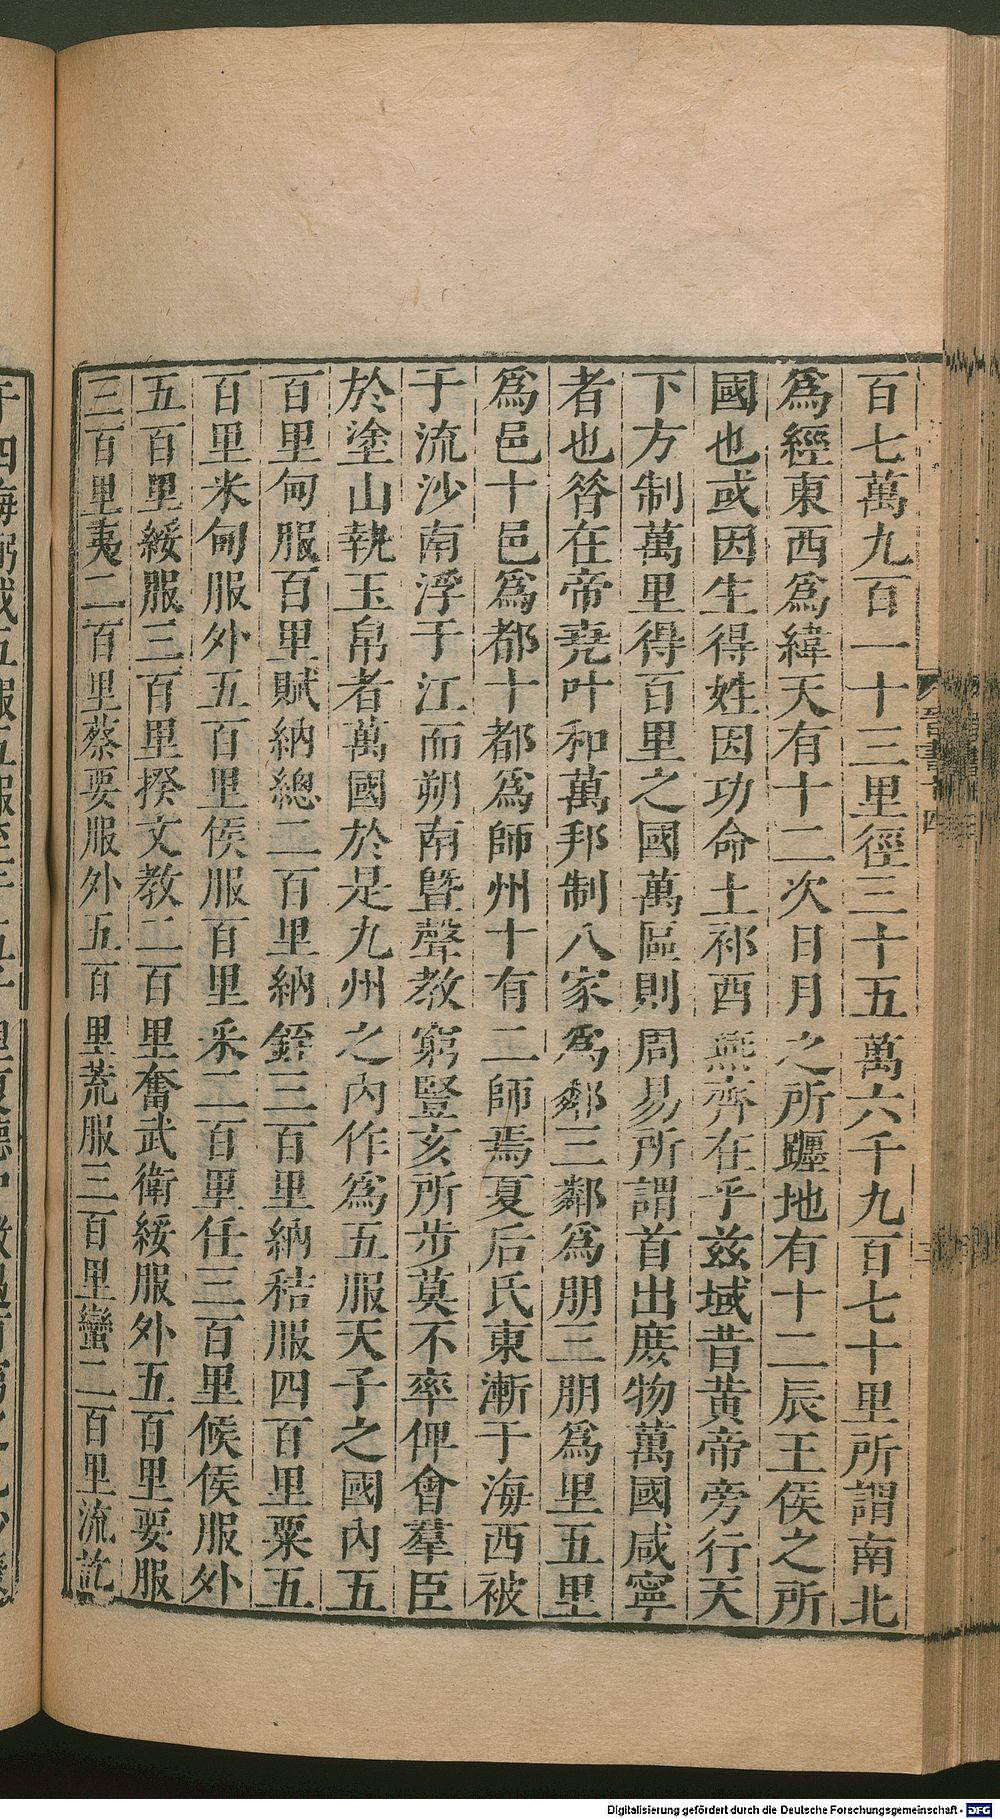 百七萬九百一十三里徑三十五萬六千九百七十里所謂南北
爲經東西爲緯天有十二次日月之所躔地有十二辰王侯之所
國也或因生得姓因功命土祁酉燕齊在乎兹域昔黃帝旁行天
下方制萬里得百里之國萬區則周易所謂首出庶物萬國咸寧
者也昝在帝堯叶和萬邦制八家爲鄰三鄰爲朋三朋爲里五里
爲邑十邑爲都十都爲師州十有二師焉夏后氏東漸于海西被
于流沙南浮于江而朔南暨聲教窮豎亥所步莫不率俾會羣臣
於塗山執玉帛者萬國於是九州之內作爲五服天子之國內五
百里甸服百里賦納總二百里納銍三百里納秸服四百里粟五
百里米甸服外五百里侯服百里釆二百里任三百里候侯服外
五百里綏服三百里揆文教二百里奮武衛綏服外五百里要服
三百里夷二百里蔡要服外五百里荒服三百里蠻二百里流訖
晉書十四
三
Digitalisierung gefördert durch die Deutsche Forschungsgemeinschaft - DFG